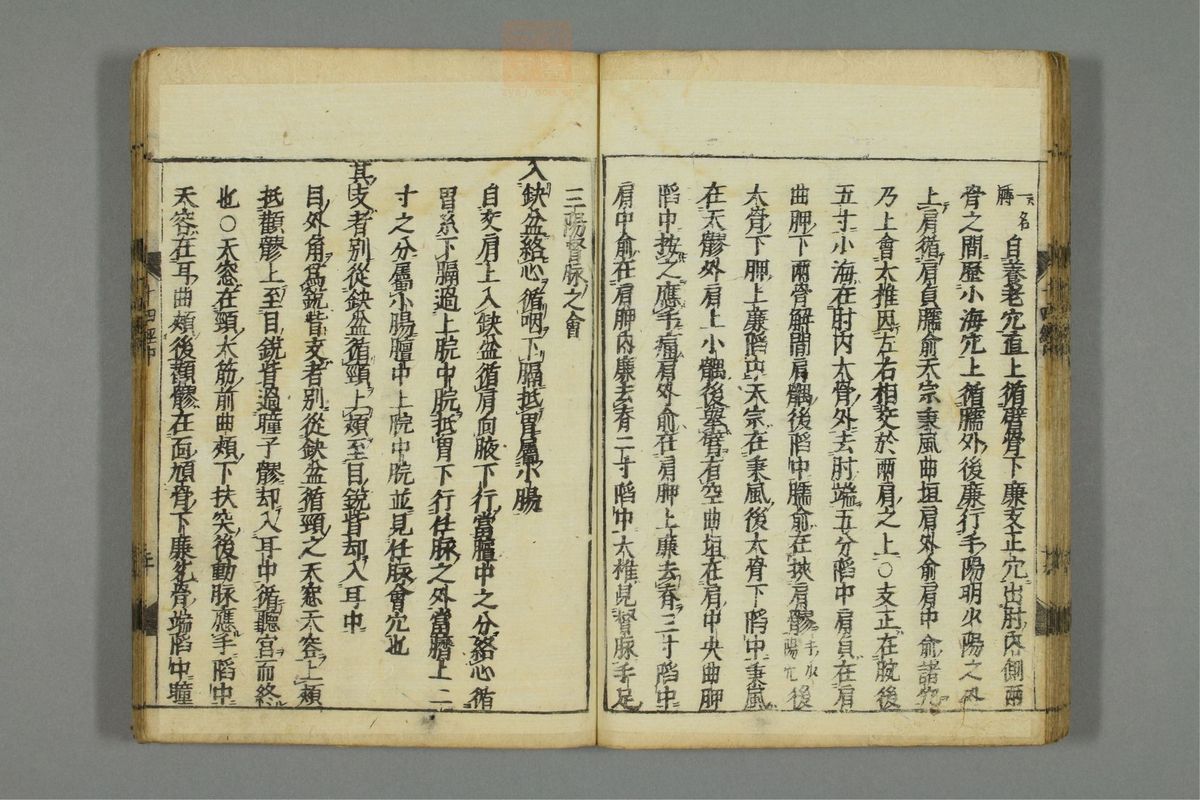 一名
臑 自養老穴直上循臂骨下廉支正穴出肘内側兩
骨之間歷小海穴上循臑外後廉行手陽明少陽之外
上肩循肩貞臑俞天宗秉風曲垣肩外俞肩中俞諸穴
乃上會大椎因左右相交於兩肩之上○支正在腕後
五寸小海在肘内大骨外去肘端五分陷中肩貞在肩
曲胛下兩骨解間肩髃後陷中臑俞在挾肩髎手少陽穴後
大骨下胛上廉陷中天宗在秉風後大骨下陷中秉風
在天髎外肩上小髃後舉臂有空曲垣在肩中央曲胛
陷中按之應手痛肩外俞在肩胛上廉去脊三寸陷中
肩中俞在肩胛内廉去脊二寸陷中大椎見督脉手足
三陽督脉之會
入缺盆絡心循咽下膈抵胃屬小腸
自交肩上入缺盆循肩向腋下行當膻中之分絡心循
胃系下膈過上脘中脘抵胃下行任脉之外當臍上二
寸之分屬小腸膻中上脘中脘並見任脉會穴也
其支者別從缺盆循頸上頰至目銳眥却入耳中
目外角爲銳眥支者別從缺盆循頸之天窓天容上頰
抵顴髎上至目銳眥過瞳子髎却入耳中循聽宮而終
也○天窓在頸大筋前曲頰下扶突後動脉應手陷中
天容在耳曲頰後顴髎在面頄骨下廉兌骨端陷中瞳
十四經中